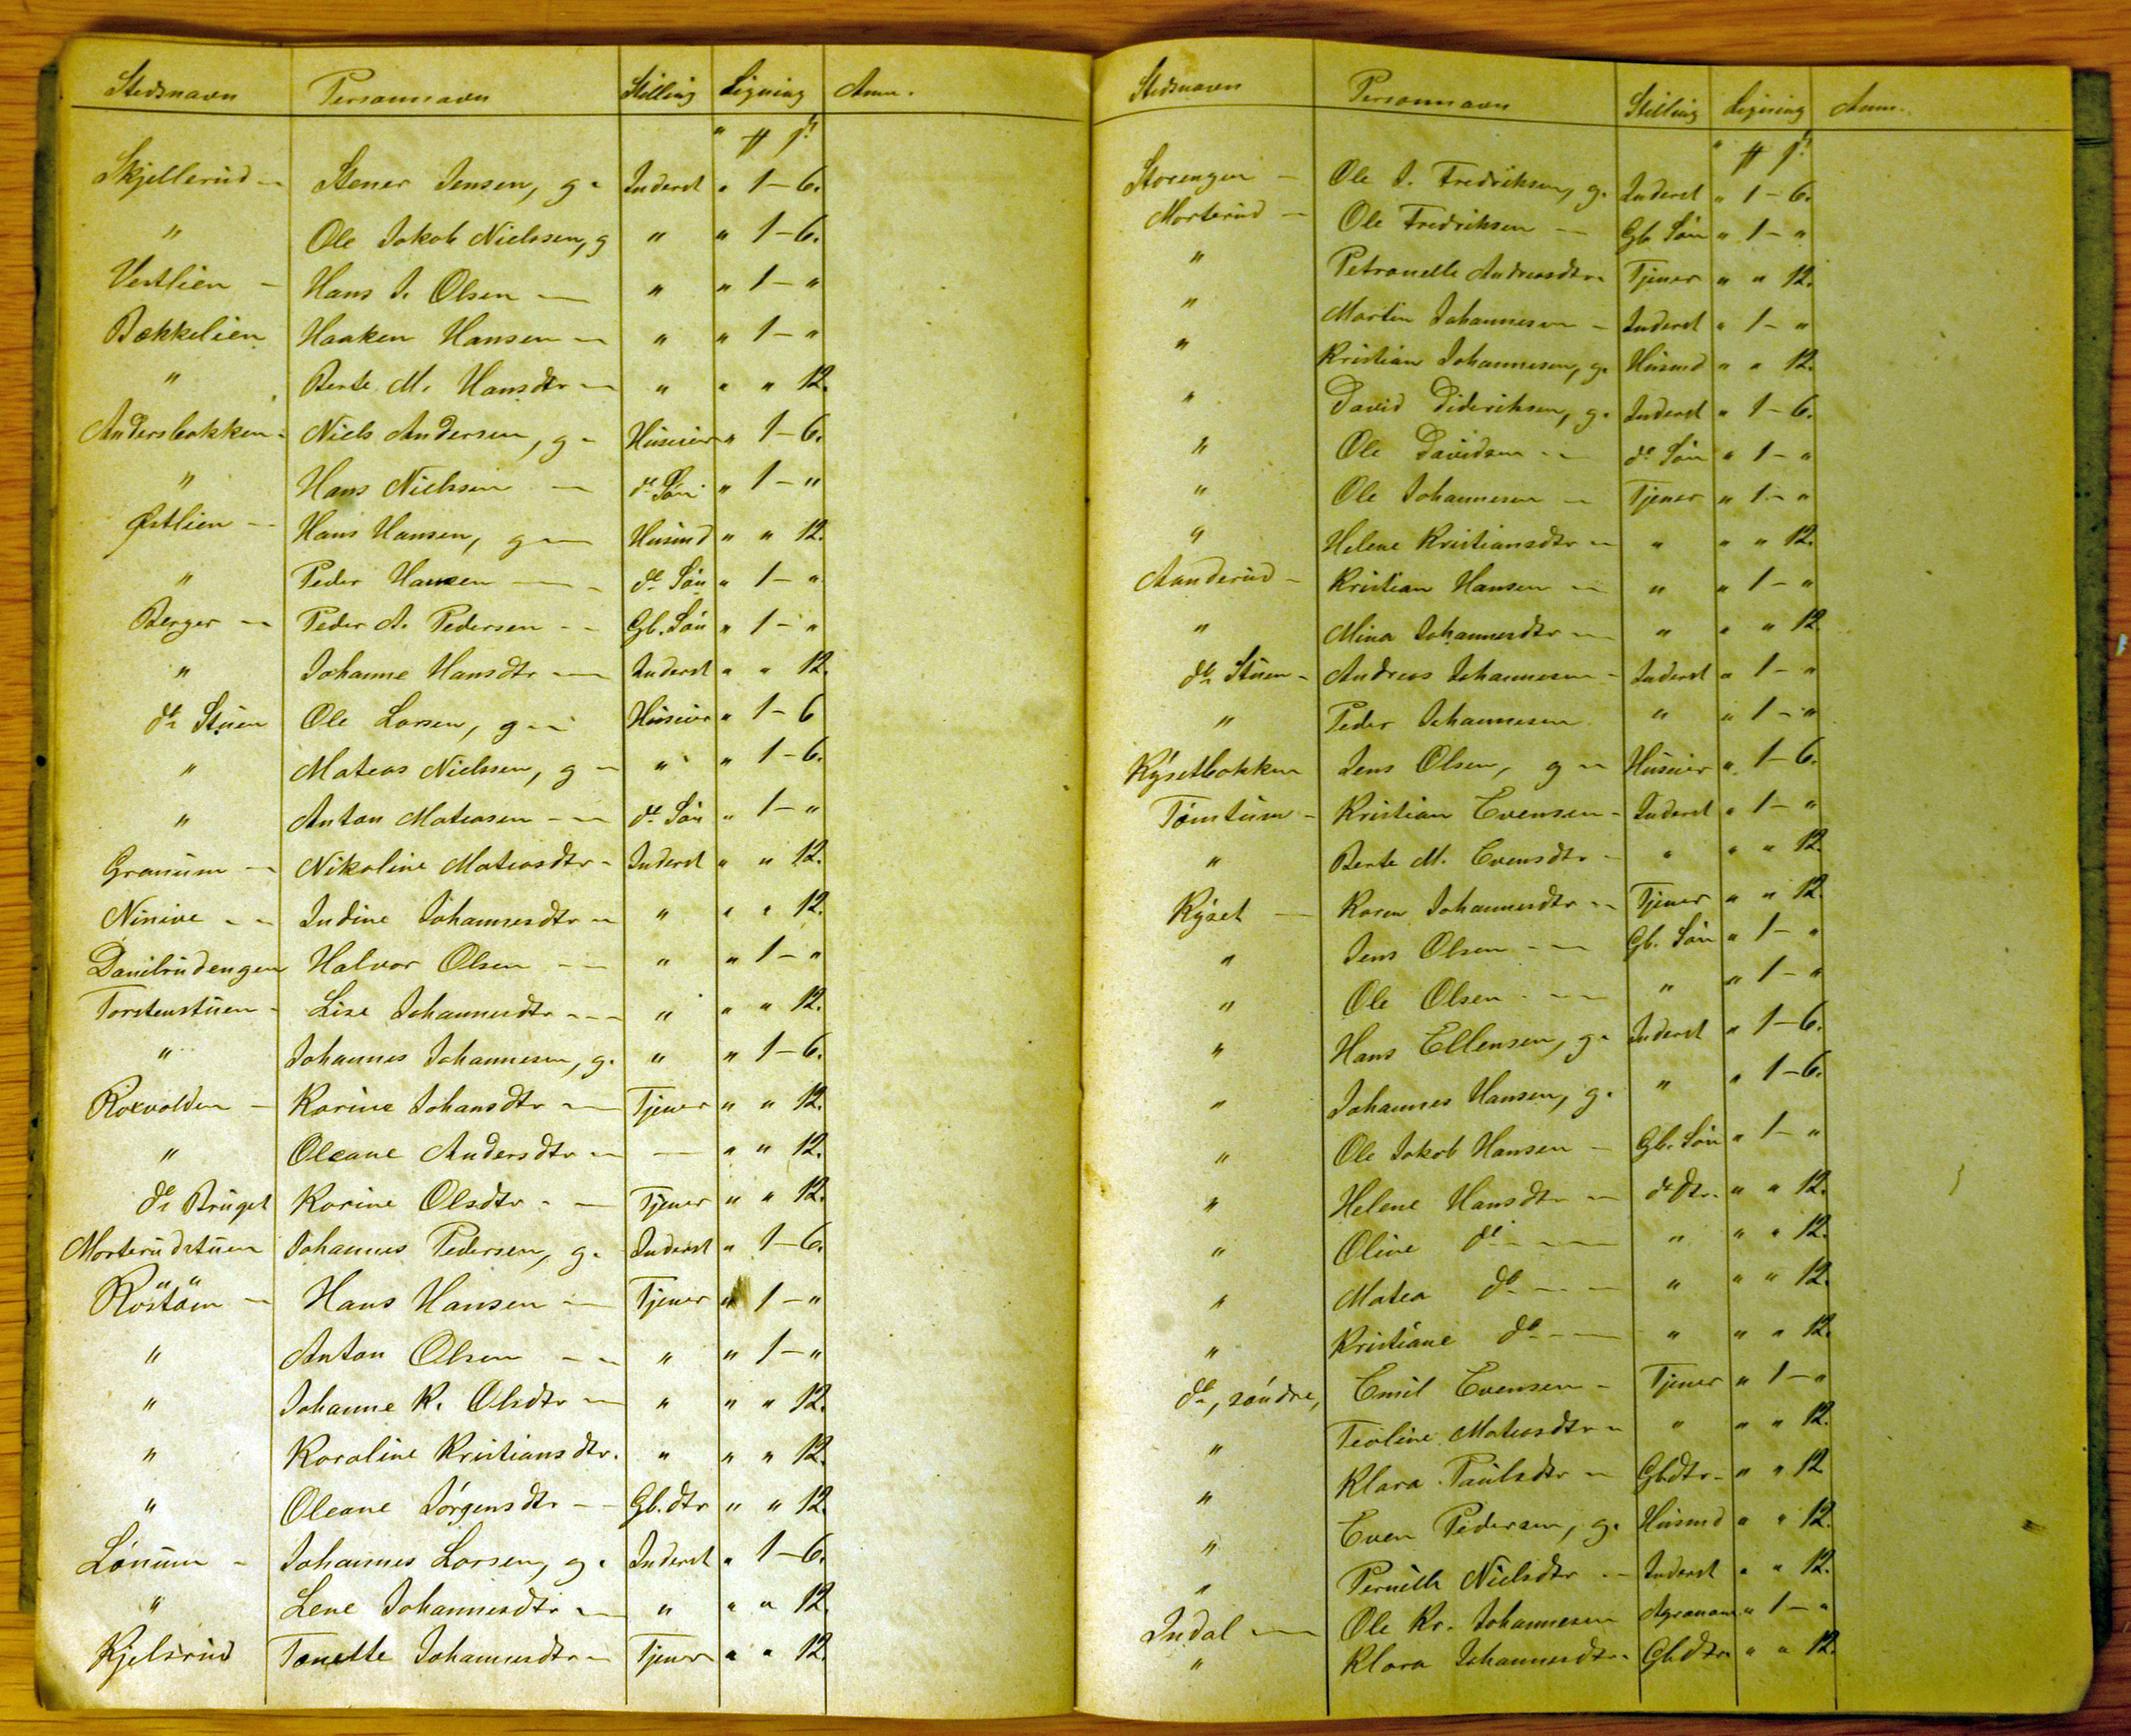 Stedsnavn Personnavn Stilling Ligning Anm.
" # β
Skjellerud - Stener Jensen, g - Inderst " 1 - 6.
" Ole Jakob Nielssen, g " " 1 - 6.
Vestlien - Hans J. Olsen - " " 1 - "
Bækkelien Haaken Hansen - " " 1 - "
" Berte M. Hansdtr - " " " 12.
Andersbakken - Niels Andersen, g - Huseier " 1 - 6.
" Hans Nielssen - do Søn " 1 - "
Østlien - Hans Hansen, g - Husmd " " 12.
" Peder Hansen - do Søn " 1 - "
Berger - Peder A. Pedersen - Gb. Søn " 1 - "
" Johanne Hansdtr - Inderst " " 12.
do Stuen Ole Larsen, g - Huseier " 1 - 6
" Mateas Nielssen, g - " " 1 - 6.
" Anton Mateasen - do Søn " 1 - "
Granum - Nikoline Mateasdtr - Inderst " " 12.
Ninive - Indine Johannesdtr - " " " 12.
Danilrudengen Halvor Olsen - " " 1 - "
Torstenstuen - Lise Johannesdtr - " " " 12.
" Johannes Johannesen, g. " " 1 - 6.
Roxvolden - Karine Johansdtr - Tjener " " 12.
" Oleane Andersdtr - - " " 12.
do Bruget Karine Olsdtr - Tjener " " 12.
Morterudstuen Johannes Pedersen, g. Inderst " 1 - 6.
Röstöm - Hans Hansen - Tjener " 1 - "
" Anton Olsen - " " 1 - "
" Johanne K. Olsdtr - " " " 12.
" Karoline Kristiansdtr. " " " 12.
" Oleane Jørgensdtr - Gb. dtr " " 12.
Lønum - Johannes Larsen, g. Inderst " 1 - 6.
" Lene Johannesdtr - " " " 12.
Kjelsrud Tonette Johannesdtr - Tjener " " 12.
Stedsnavn Personnavn Stilling Ligning Anm.
" # β
Storengen - Ole J. Fredriksen, g. Inderst " 1 - 6.
Morterud - Ole Fredriksen - Gb. Søn " 1 - "
" Petronelle Andreasdtr. Tjener " " 12.
" Martin Johannesen - Inderst " 1 - "
" Kristian Johannesen, g. Husmd " " 12.
" David Dideriksen, g. Inderst " 1 - 6.
" Ole Davidsen - do Søn " 1 - "
" Ole Johannesen - Tjener " 1 - "
" Helene Kristiansdtr - " " " 12.
Aanderud - Kristian Hansen - " " 1 - "
" Mina Johannesdtr - " " " 12
do Stuen - Andreas Johannesen - Inderst " 1 - "
" Peder Johannesen " " 1 - "
Kýsetbakken Jens Olsen, g - Huseier " 1 - 6.
Tømtum - Kristian Evensen - Inderst " 1 - "
" Berte M. Evensdtr - " " " 12
Kýset - Karen Johannesdtr - Tjener " " 12.
" Jens Olsen - Gb. Søn " 1 - "
" Ole Olsen - " " 1 - "
" Hans Ellensen, g. Inderst " 1 - 6.
" Johannes Hansen, g. " " 1 - 6.
" Ole Jakob Hansen - Gb. Søn " 1 - "
" Helene Hansdtr - do dtr. " " 12.
" Oline do - " " " 12.
" Matea do - " " " 12.
" Kristiane do - " " " 12.
do, søndre, Emil Evensen - Tjener " 1 - "
" Teoline Mateasdtr - " " " 12.
" Klara Paulsdtr - Gbdtr - " " 12
" Even Pedersen, g. Husmd " " 12.
" Pernille Nielsdtr - Inderst " " 12.
Indal - Ole Kr. Johannesen Agronom " 1 - "
" Klara Johannesdtr. Gbdtr. " " 12.